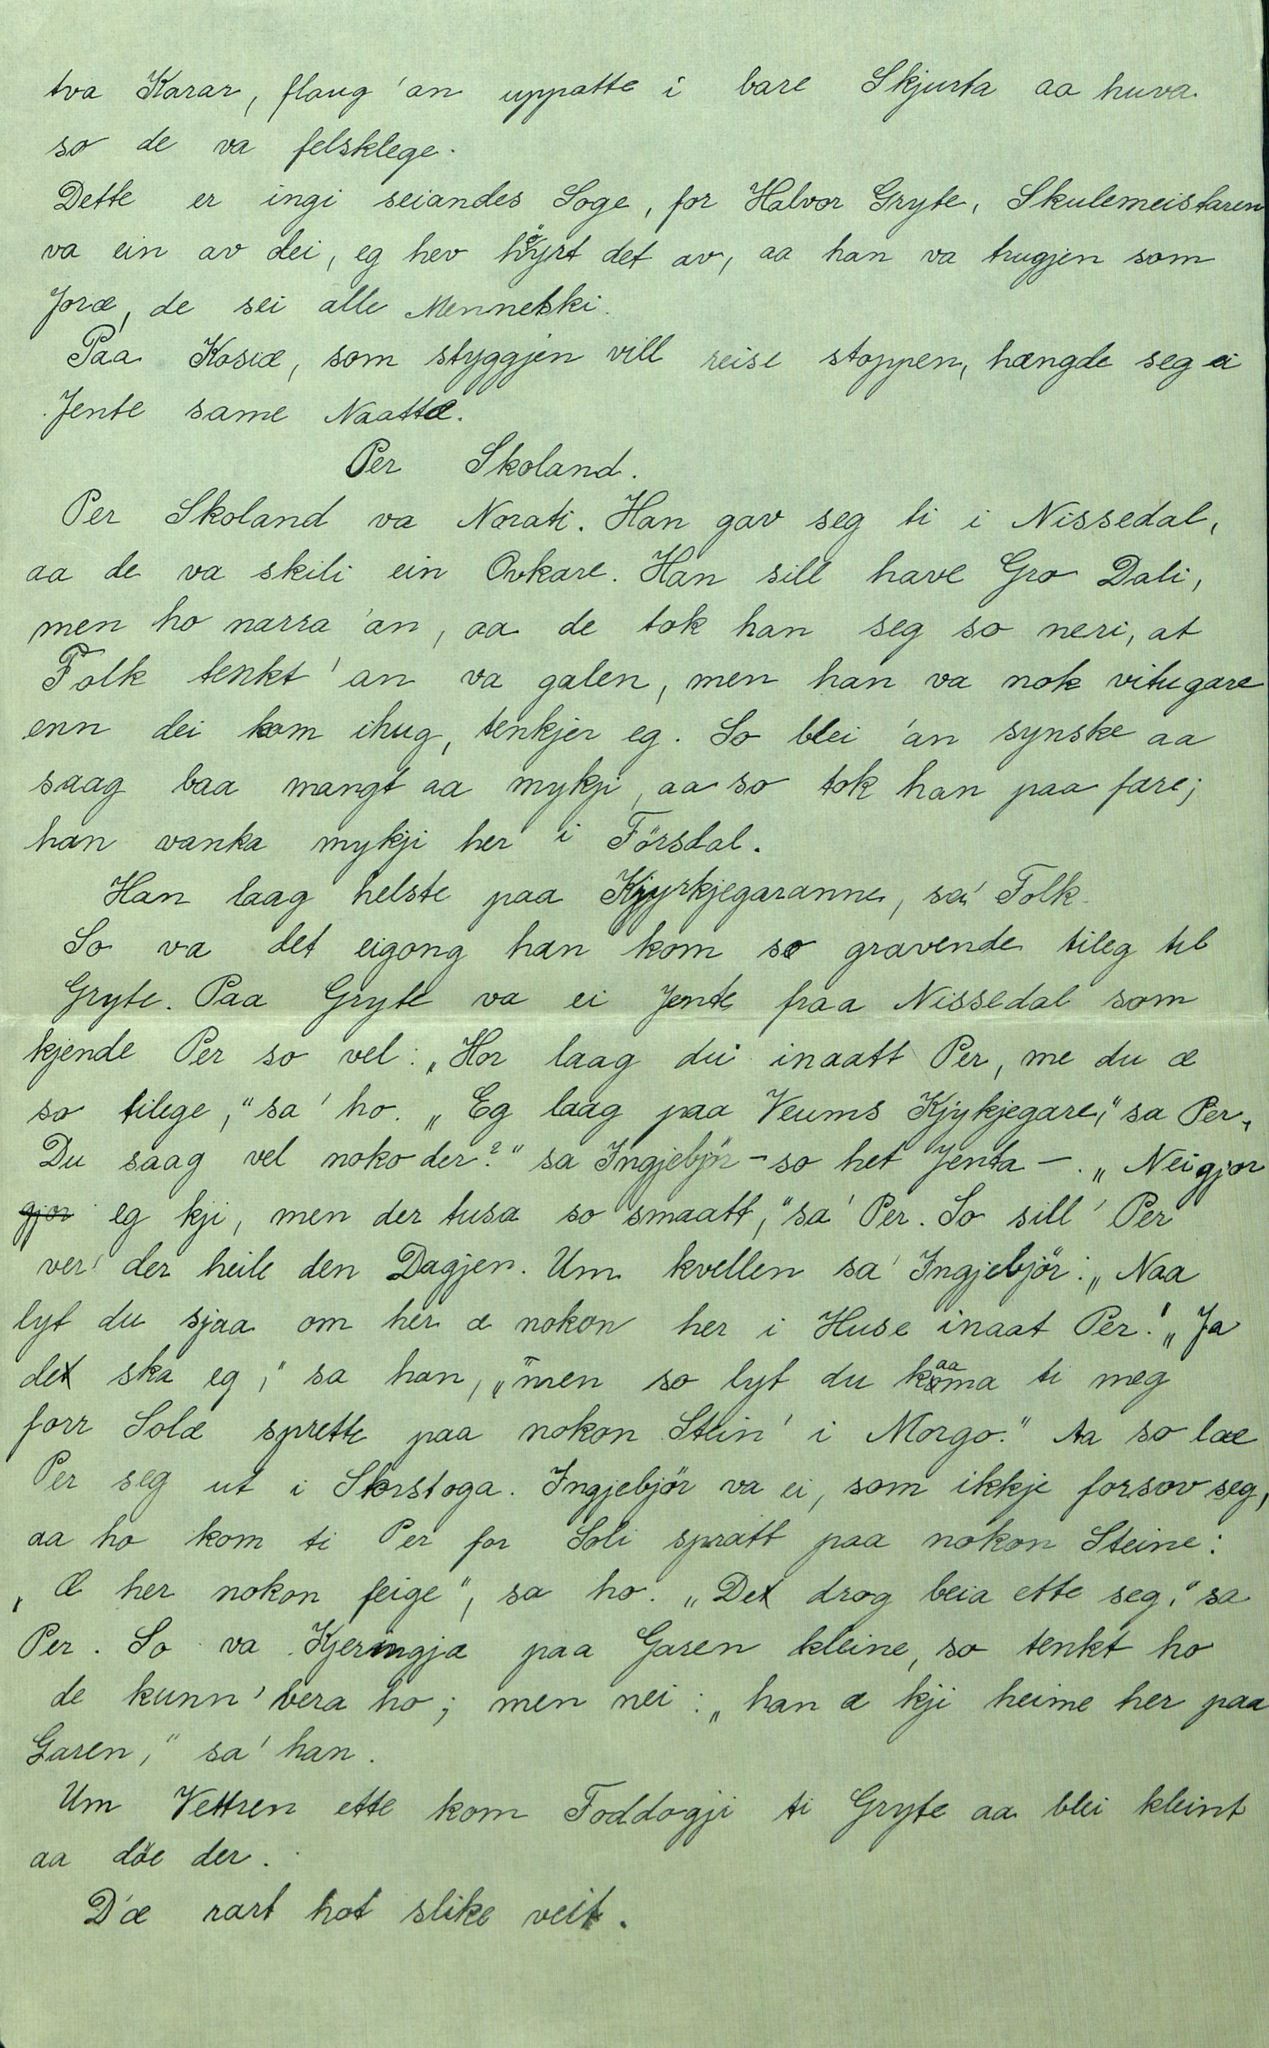 tva Karar, flaug 'an uppatte i bare Skjurta aa huva
so de va felsklege.
Dette er ingi seiandes Soge, for Halvor Gryte, Skulemeistaren
va ein av dei, eg hev höyrt det av, aa han va trugjen som
Joræ, de sei alle Mennetski.
Paa Kosiæ, som styggjen vill reise stoppen, hængde seg ei
Jente same Naattæ.
Per Skoland.
Per Skoland va Norati. Han gav seg ti i Nissedal,
aa de va skili ein Ovkare. Han sill have Gro Dali,
men ho narra 'an, aa de tok han seg so neri, at
Folk tenkt 'an va galen, men han va nok vitugare
enn dei kom ihug, tenkjer eg. So blei 'an synske aa
saag baa mangt aa mykji, aa so tok han paa fare;
han vanka mykji her i Försdal.
Han laag helste paa Kjyrkjegaranne, sa' Folk.
So va det eigong han kom so gravende tileg til
Gryte. Paa Gryte va ei Jente fraa Nissedal som
kjende Per so vel: „Hor laag du inaatt Per, me du æ
so tilege," sa' ho. „Eg laag paa Veums Kjykjegare," sa Per.
Du saag vel noko der?" sa Ingjebjör – so het Jenta –. „Nei gjor
gjor eg kji, men der tusa so smaatt," sa' Per. So sill' Per
ver' der heile den Dagjen. Um kvellen sa' Ingjebjör: „Naa
lyt du sjaa om her æ nokon her i Huse inaat Per!" „Ja
det ska eg," sa han, „men so lyt du kaama ti meg
forr Solæ sprette paa nokon Stein' i Morgo." Aa so lae
Per seg ut i Storstoga. Ingjebjör va ei, som ikkje forsov seg,
aa ho kom ti Per for Soli spratt paa nokon Steine:
„Æ her nokon feige", sa ho. „Det drog beia ette seg," sa
Per. So va Kjeringjæ paa Garen kleine, so tenkt ho
de kunn' vera ho; men nei: „han æ kji heime her paa
Garen," sa' han.
Um Vettren ette kom Foddogji ti Gryte aa blei kleint
aa döe der.
D'æ rart hot slike veit.